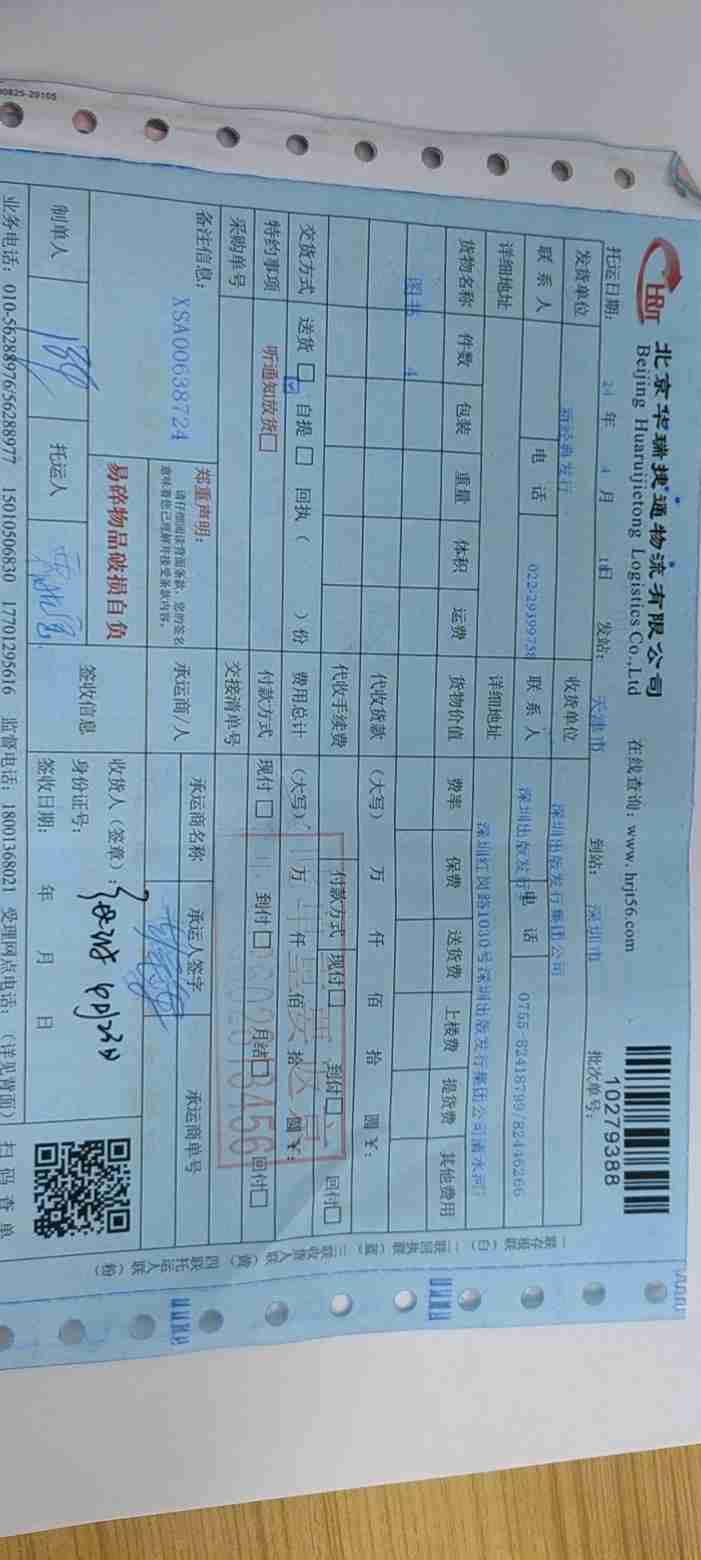 北京华瑞捷通物流有限公司
Beijing Huaruijietong Logistics Co.,Ltd
在线查询：www.hrjt56.com
10279388
托运日期： 24 年 4 月 日 发站： 天津市 到站： 深圳市 批次单号：
发货单位 新经典发行 收货单位 深圳出版发行集团公司
联系人 电话 022-29399758 联系人 深圳出版发行 电话 0755-82418799/82446266
详细地址 详细地址 深圳红岗路1030号深圳出版发行集团公司清水河
货物名称 件数 包装 重量 体积 运费 货物价值 费率 保费 送货费 上楼费 提货费 其他费用
图书 4
代收货款 （大写） 万 仟 佰 拾 圆 ¥：
代收手续费 付款方式 现付□ 到付□ 回付□
交货方式 送货 □ 自提 □ 回执（ ）份 费用总计 （大写） 万 仟 佰 拾 圆 ¥：
特约事项 听通知放货□ 付款方式 现付 □ 到付 □ 月结□ 回付□
采购单号 交接清单号
备注信息：
XSA00638724
郑重声明：
请仔细阅读背面条款，您的签名
意味着您已理解并接受条款内容。
易碎物品破损自负
承运商/人 承运商名称 承运人签字 承运商单号
制单人 托运人
签收信息 收货人（签章）：
身份证号：
签收日期： 年 月 日
扫码查单
业务电话：010-56288976/56288977 15010506830 17701295616 监督电话：18001368021 受理网点电话：（详见背面）
一联存根联（白） 二联回执联（蓝） 三联收货人联（黄） 四联托运人联（粉）